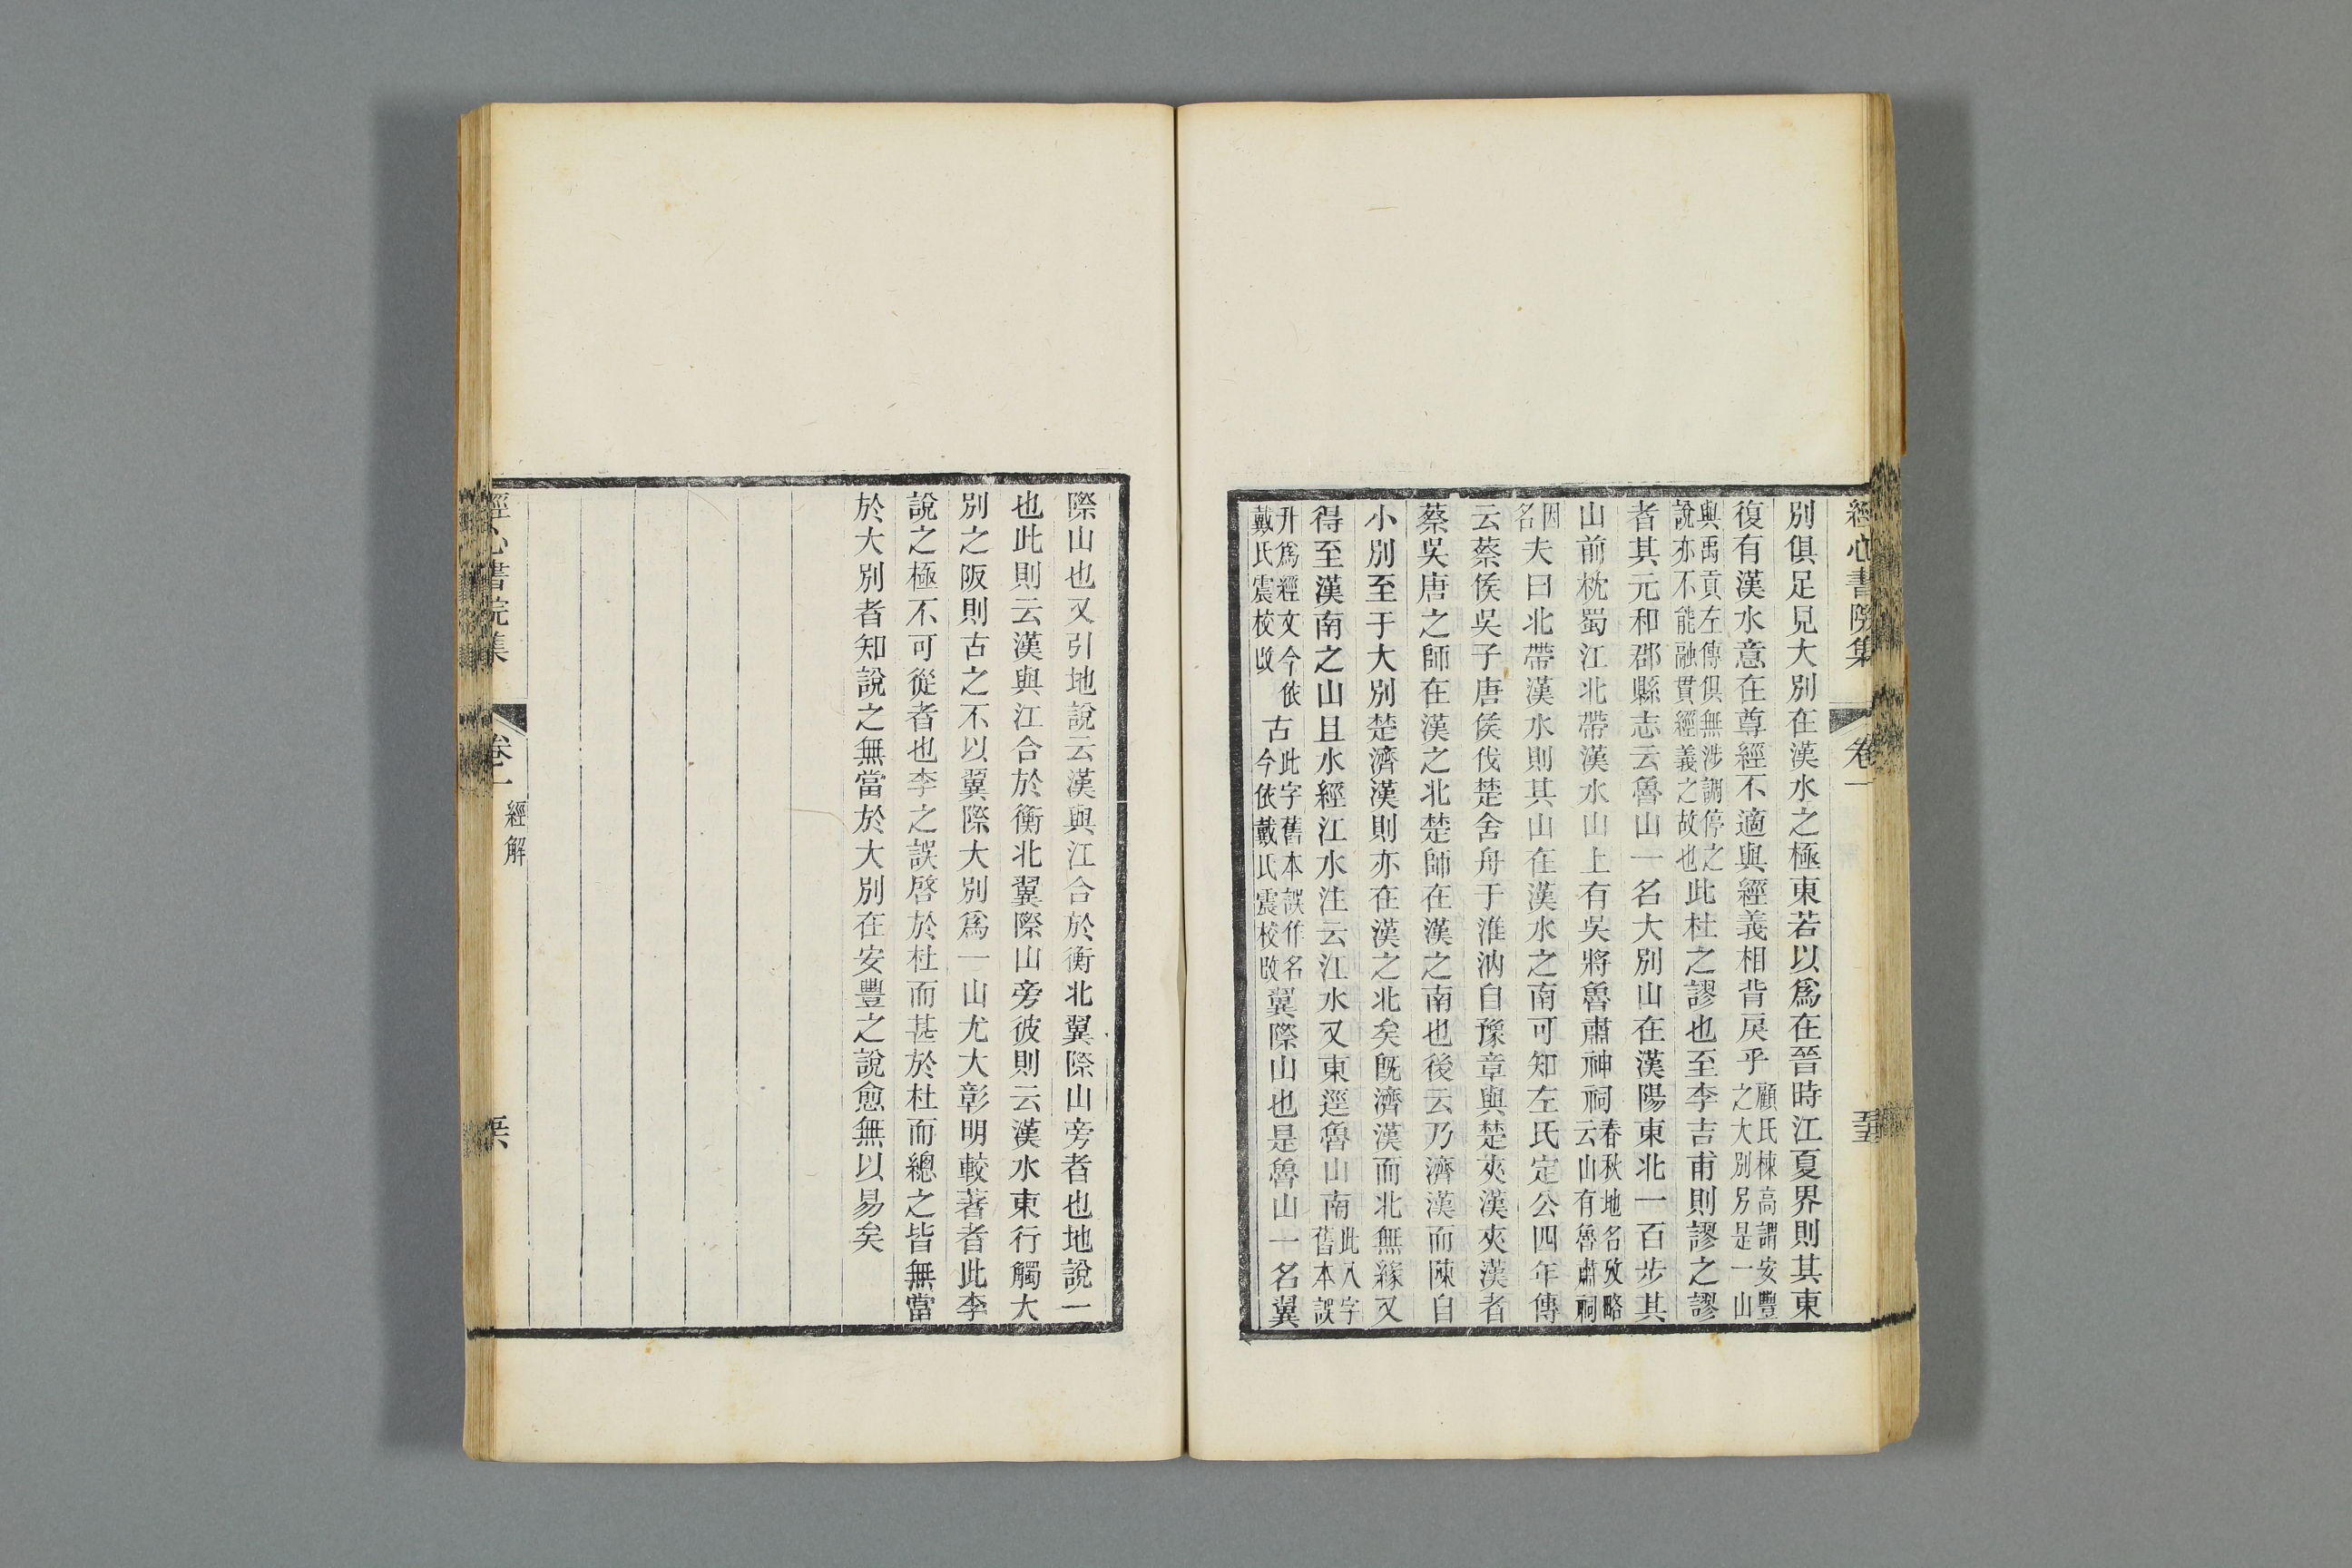 經心書院集 卷一 五五
別俱足見大別在漢水之極東若以爲在晉時江夏界則其東
復有漢水意在尊經不適與經義相背戾乎顧氏棟高謂安豐之大別另是一山
與禹貢左傳俱無涉調停之說亦不能融貫經義之故也此杜之謬也至李吉甫則謬之謬
者其元和郡縣志云魯山一名大別山在漢陽東北一百步其
山前枕蜀江北帶漢水山上有吳將魯肅神祠春秋地名攷略云山有魯肅祠
因名夫曰北帶漢水則其山在漢水之南可知左氏定公四年傳
云蔡侯吳子唐侯伐楚舍舟于淮汭自豫章與楚夾漢夾漢者
蔡吳唐之師在漢之北楚師在漢之南也後云乃濟漢而陳自
小別至于大別楚濟漢則亦在漢之北矣旣濟漢而北無緣又
得至漢南之山且水經江水注云江水又東逕魯山南此八字舊本誤
升爲經文今依戴氏震校改古此字舊本誤作名今依戴氏震校改翼際山也是魯山一名翼
際山也又引地說云漢與江合於衡北翼際山旁者也地說一
也此則云漢與江合於衡北翼際山旁彼則云漢水東行觸大
別之阪則古之不以翼際大別爲一山尤大彰明較著者此李
說之極不可從者也李之誤啓於杜而甚於杜而總之皆無當
於大別者知說之無當於大別在安豐之說愈無以易矣
經心書院集 卷一 經解 五六